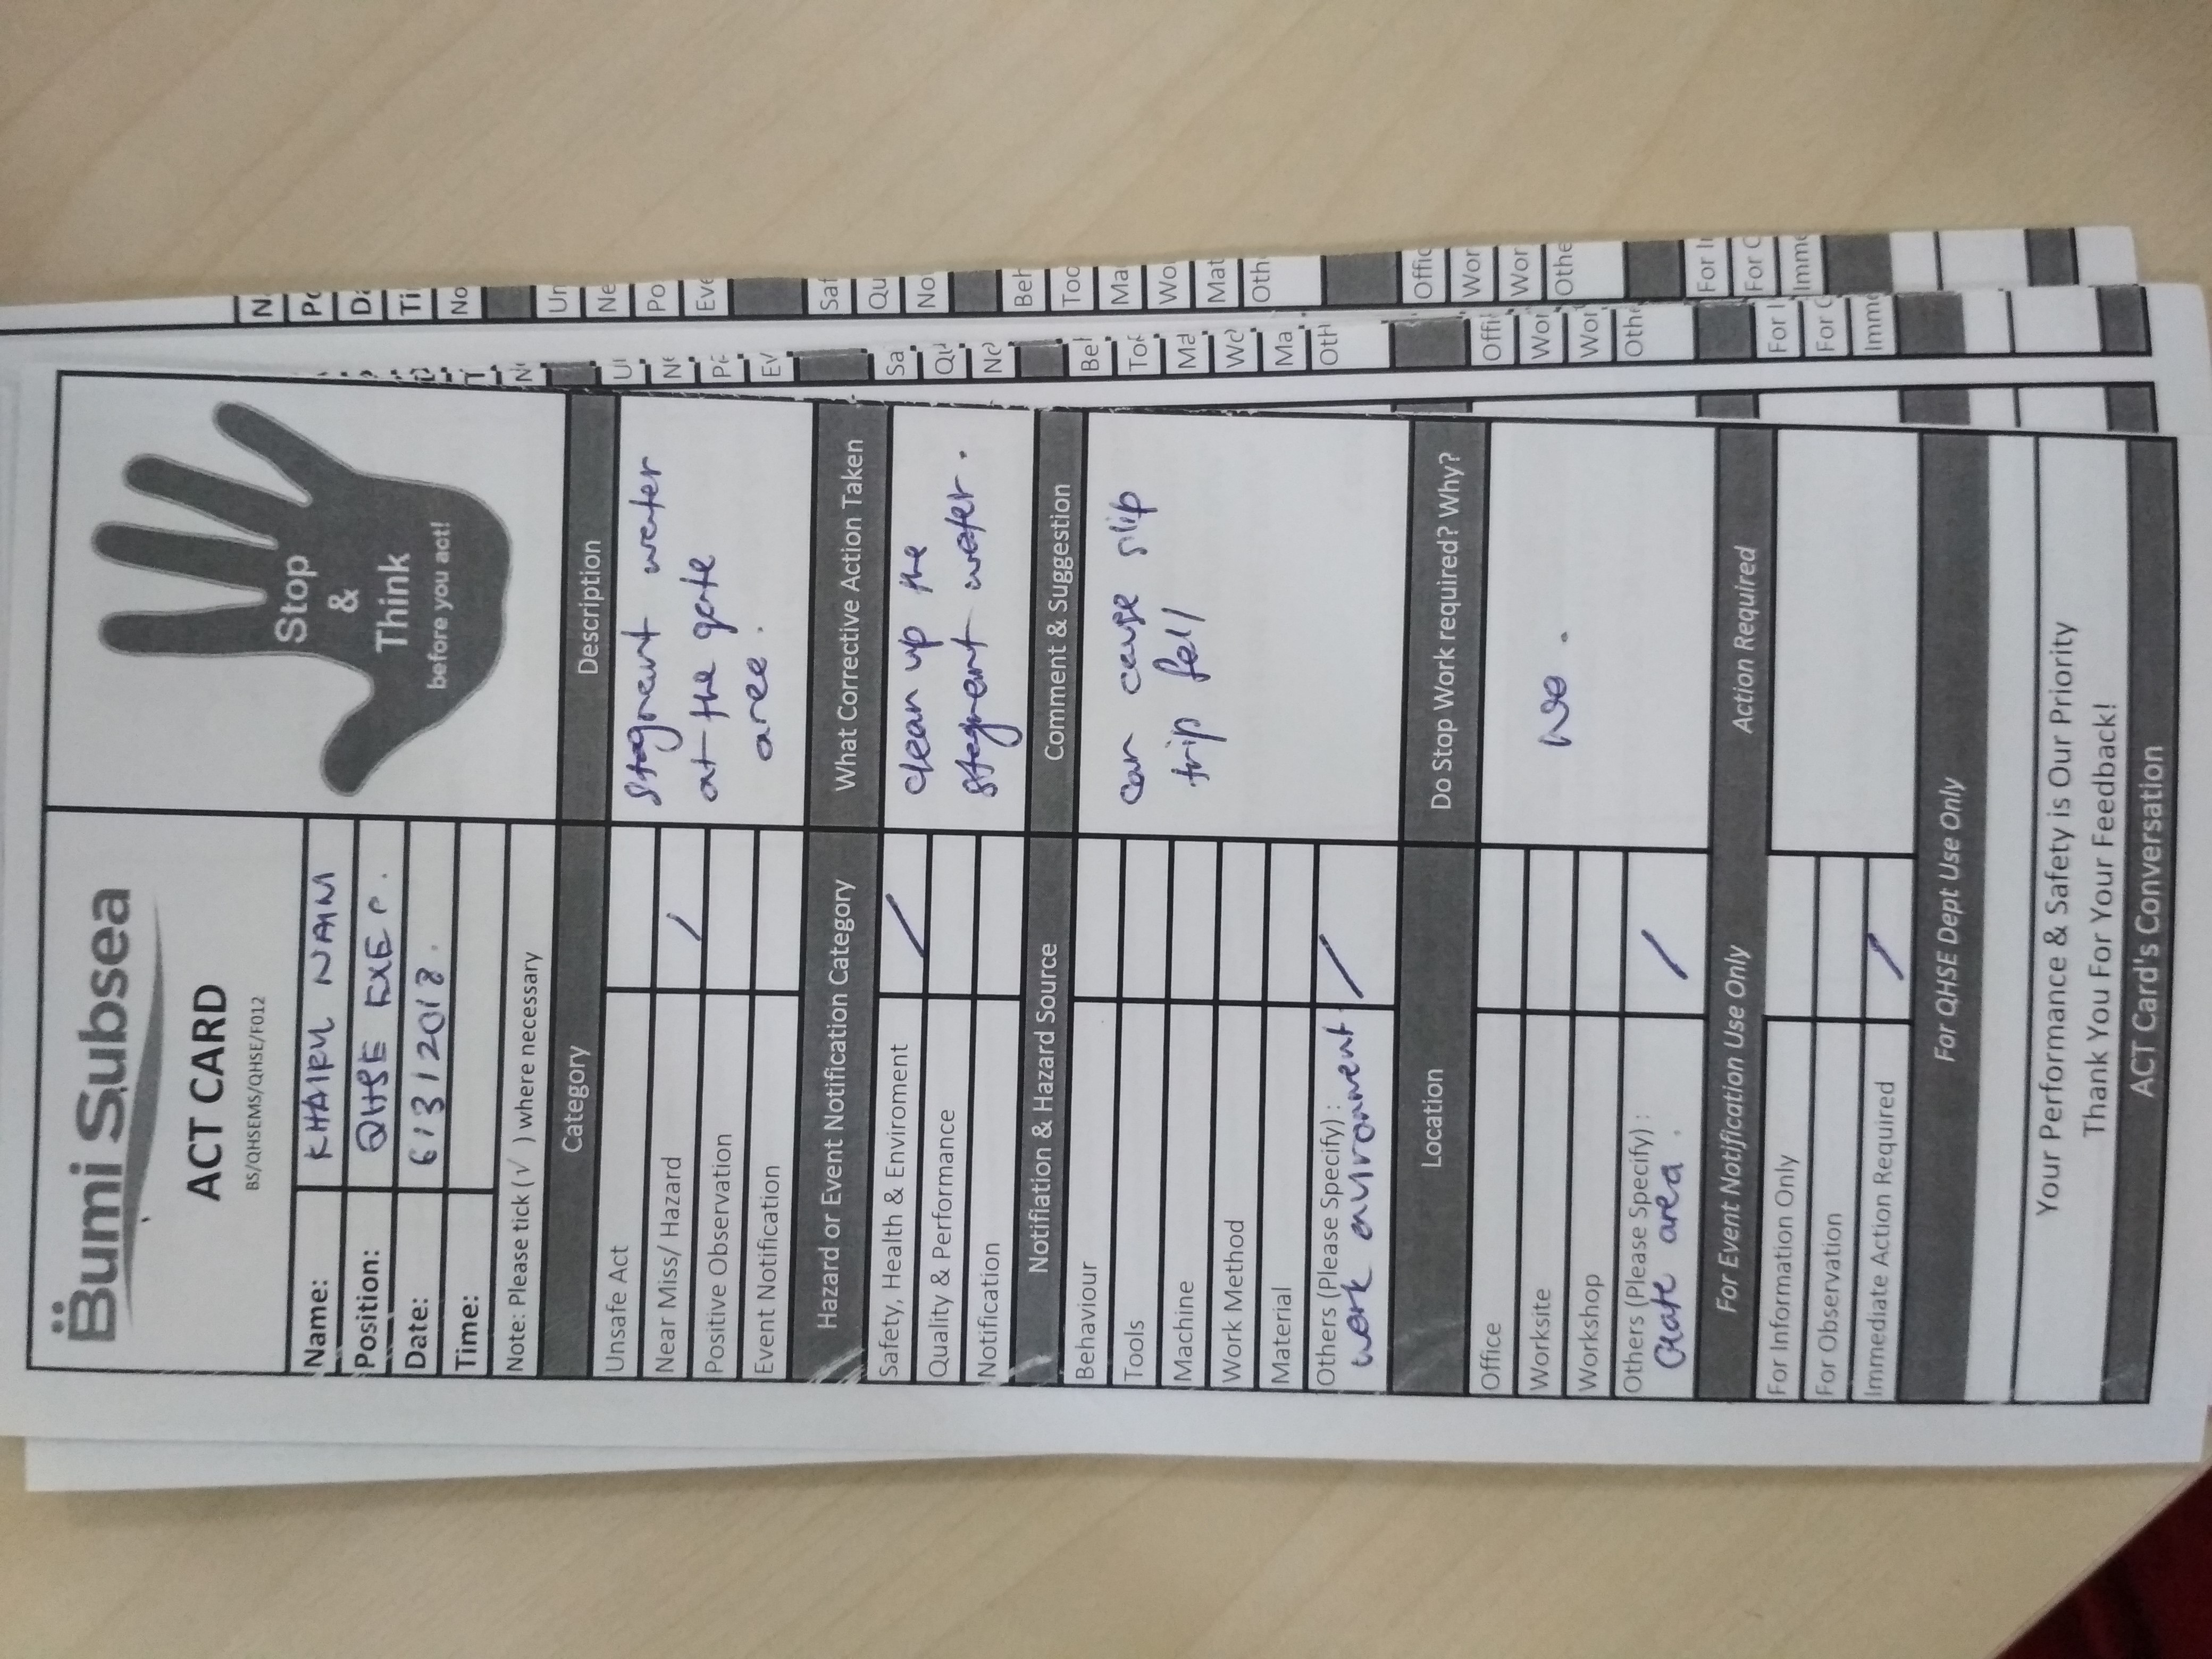 Bumi Subsea
ACT CARD
BS/QHSEMS/QHSE/F012
Stop
&
Think
before you act!
Name: KHAIRUL NAIM
Position: QHSE EXEC.
Date: 6/3/2018.
Time:
Note: Please tick (√ ) where necessary
Category
Description
Unsafe Act
Near Miss/ Hazard /
Positive Observation
Event Notification
Stagnant water
at the gate
area.
Hazard or Event Notification Category
What Corrective Action Taken
Safety, Health & Enviroment /
Quality & Performance
Notification
clean up the
stagnant water.
Notifiation & Hazard Source
Comment & Suggestion
Behaviour
Tools
Machine
Work Method
Material
Others (Please Specify) : /
work environment
can cause slip
trip fall
Location
Do Stop Work required? Why?
Office
Worksite
Workshop
Others (Please Specify) : /
Gate area.
No.
For Event Notification Use Only
Action Required
For Information Only
For Observation
Immediate Action Required /
For QHSE Dept Use Only
Your Performance & Safety is Our Priority
Thank You For Your Feedback!
ACT Card's Conversation